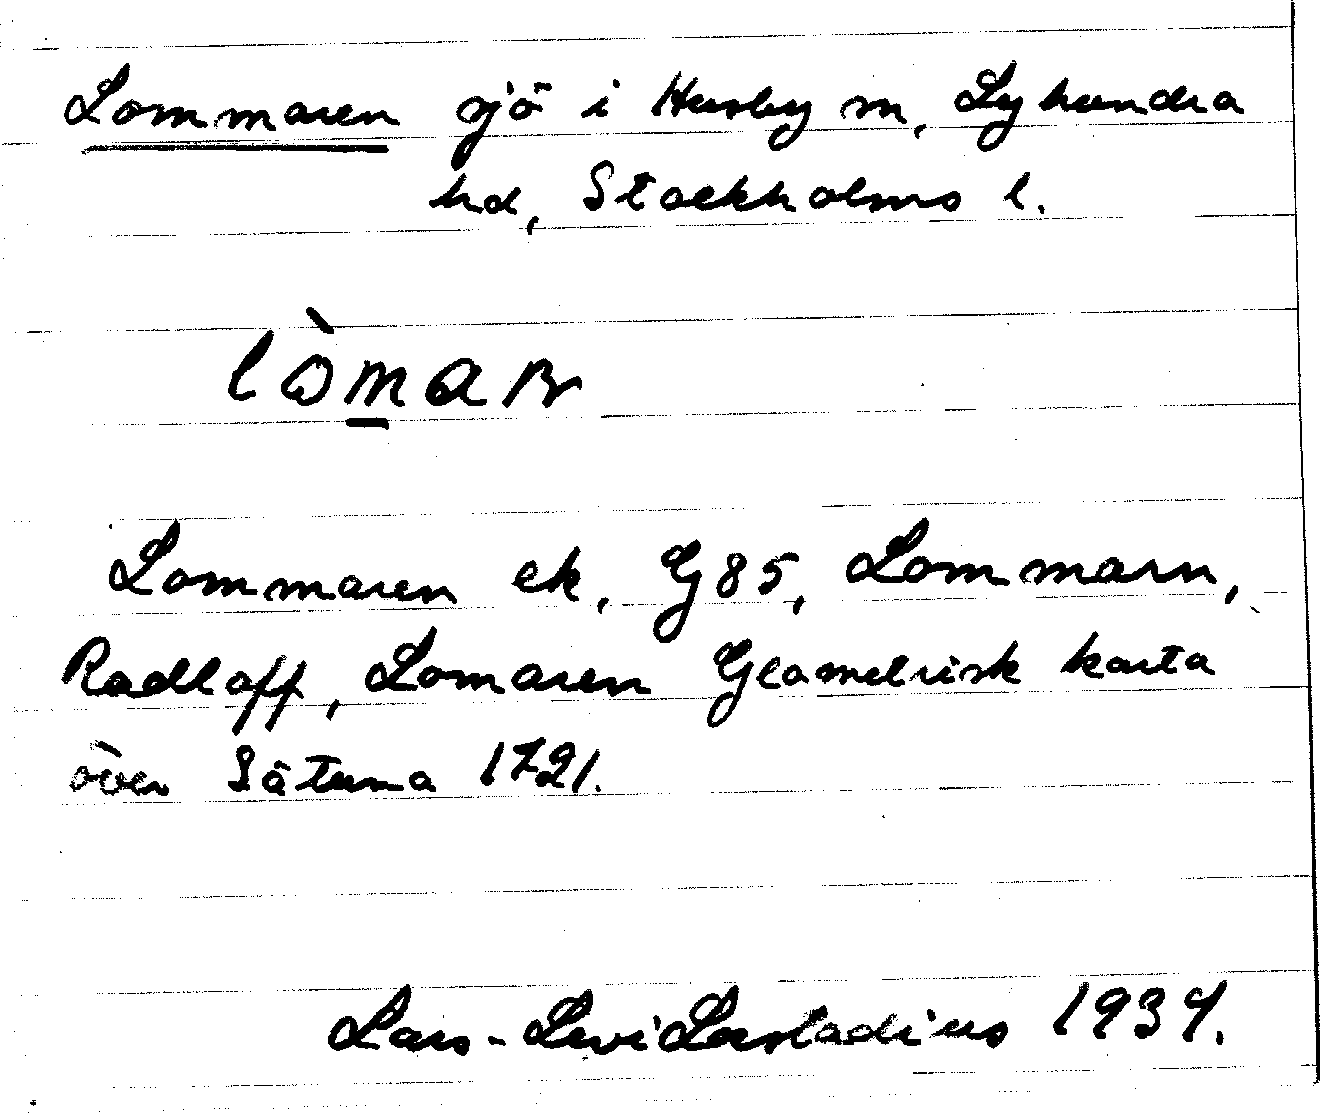 Lommaren sjö i Husby m, Lyhundra
hd, Stockholms l.
lòmar
Lommaren ek, G 85, Lommarn,
Radloff, Lomaren Geometrisk karta
över Sätuna 1721.
Lars-Levi Læstadius 1937.